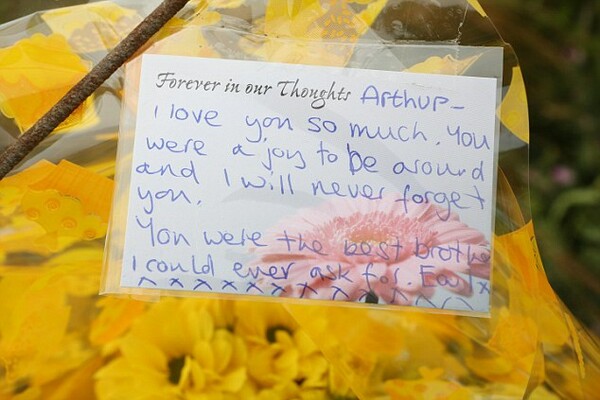 Forever in our Thoughts Arthur -
I love you so much. You
were a joy to be around
and I will never forget
you.
You were the best brothe
I could ever ask for.
x x x x x x x x x x x x